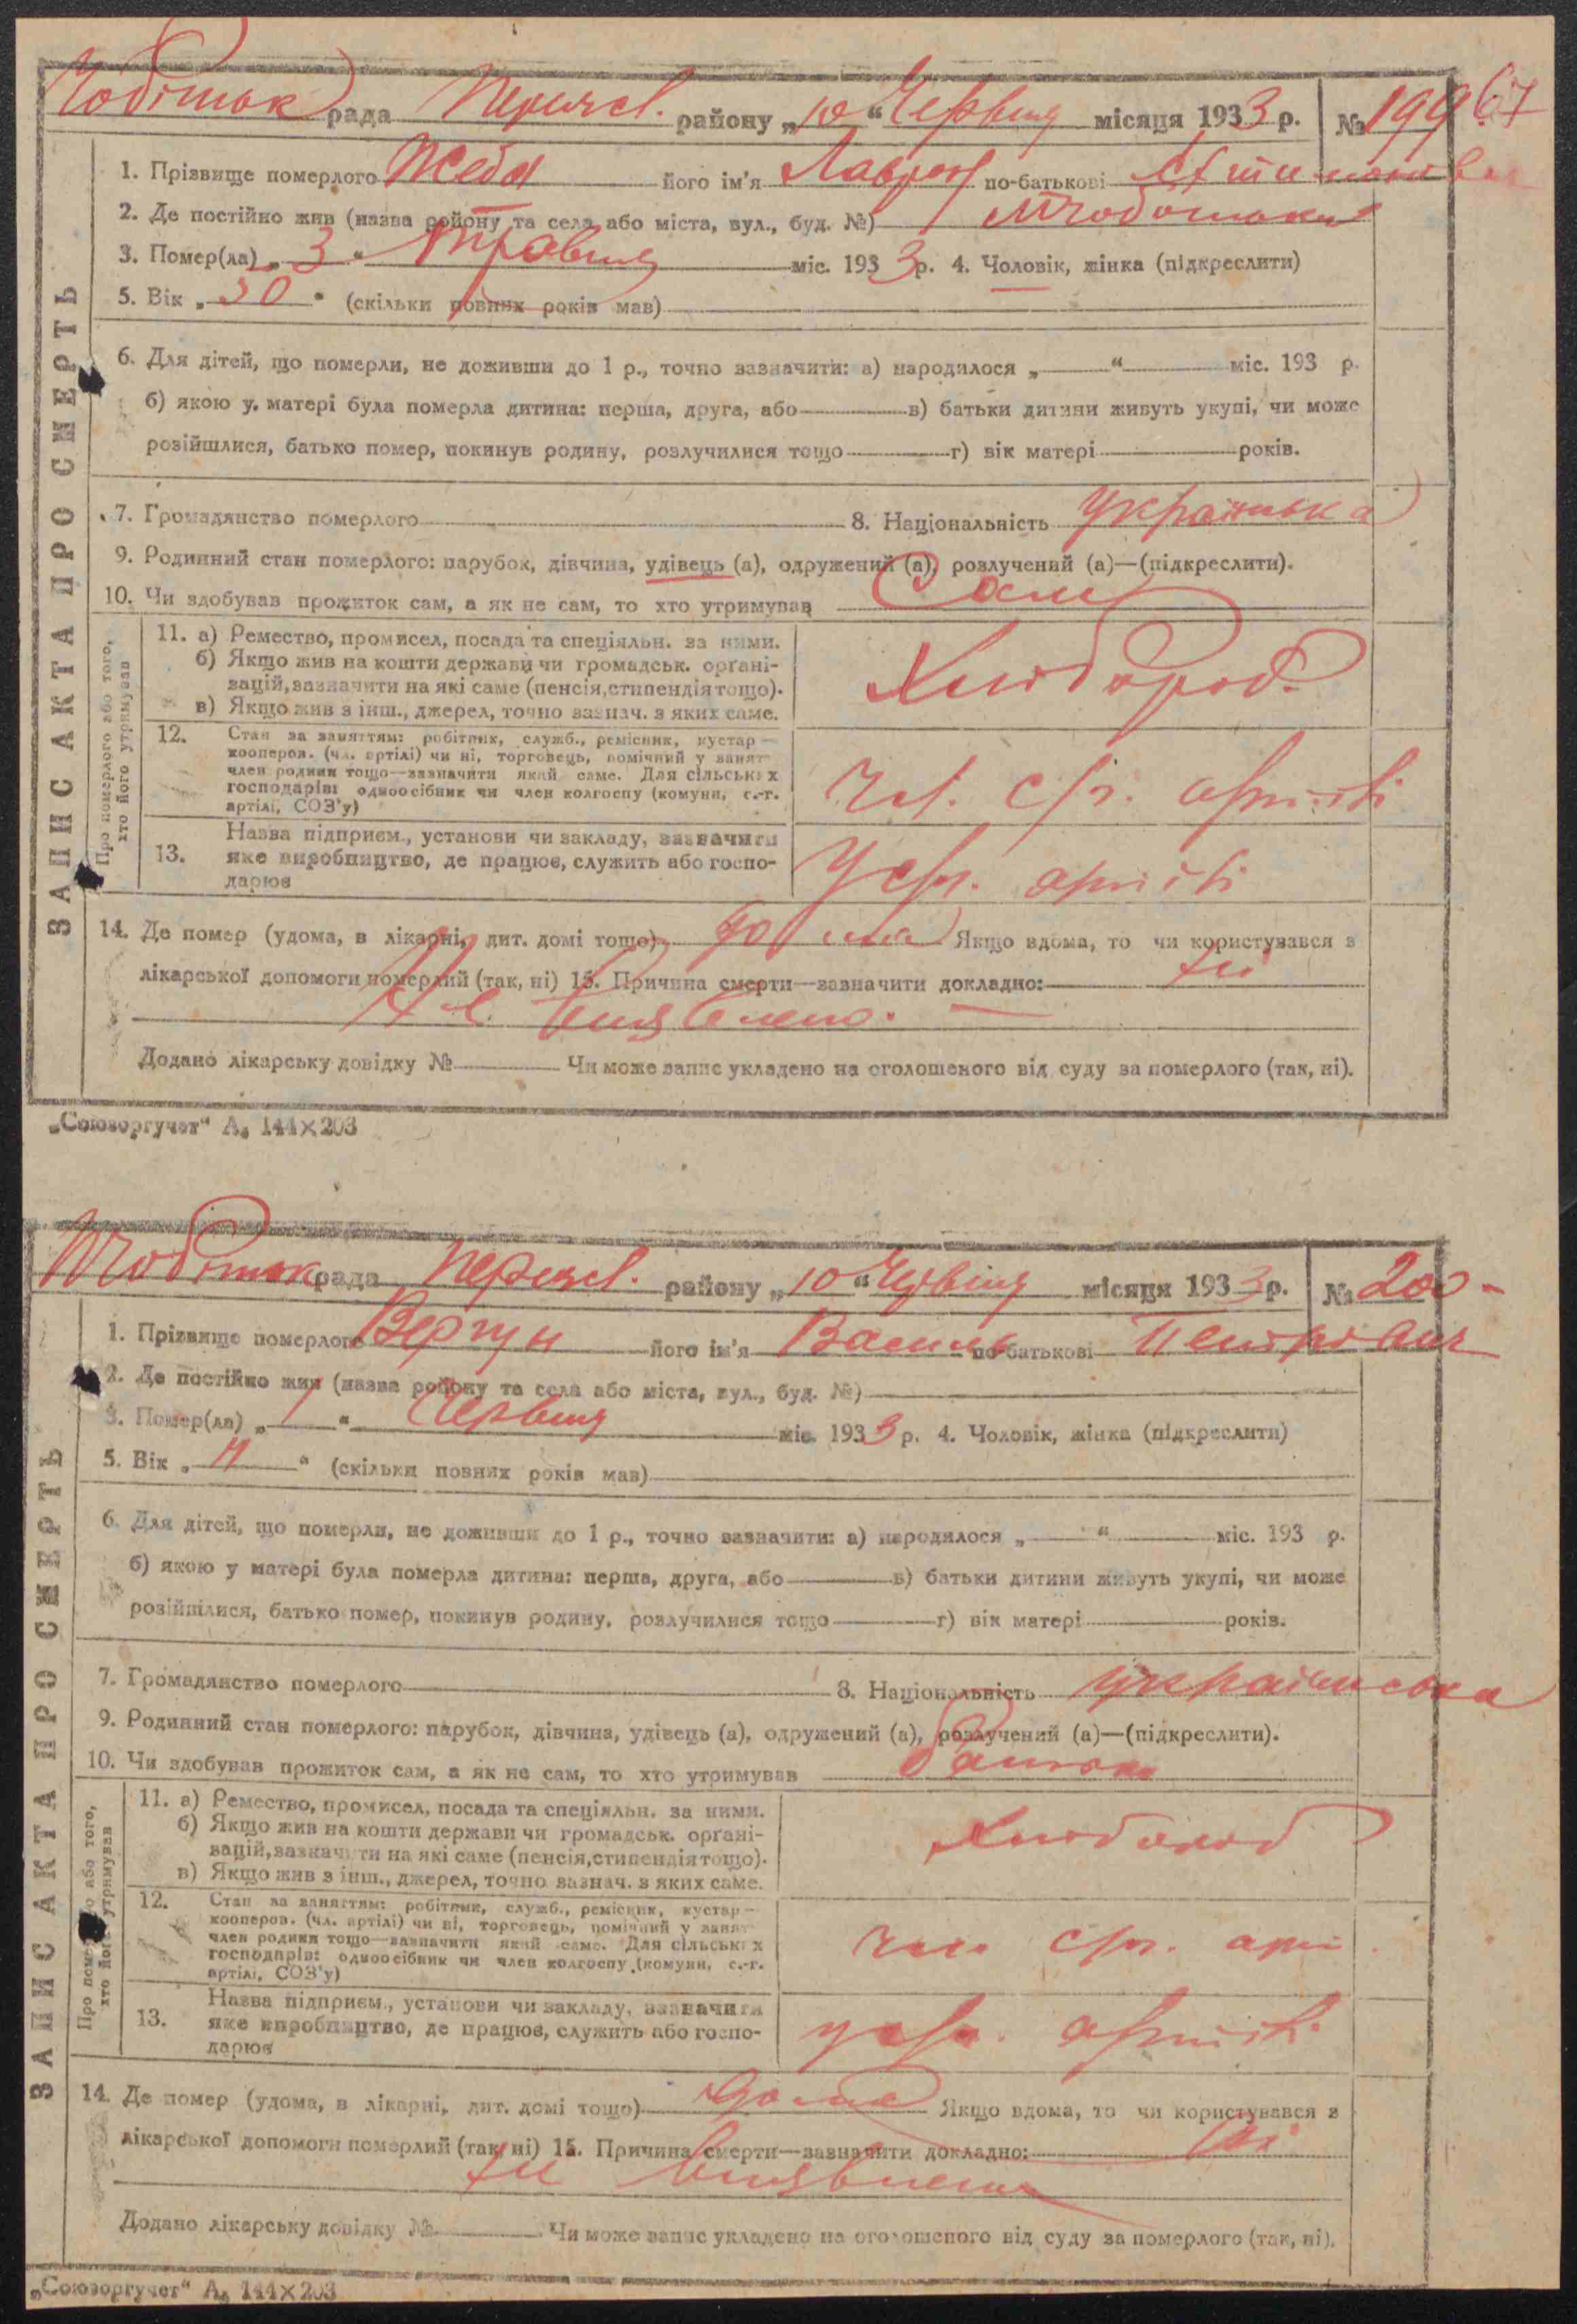 рада Переясл. району „10“ Червня місяця 1933 р. № 199 67
1. Прізвище померлого Жеба його ім'я Лаврен по-батькові
2. Де постійно жив (назва району та села або міста, вул., буд. №)
3. Помер(ла) „3“ Травня міс. 1933 р. 4. Чоловік, жінка (підкреслити)
5. Вік „50“ (скільки повних років мав)
6. Для дітей, що померли, не доживши до 1 р., точно зазначити: а) народилося „ “ міс. 193 р.
б) якою у матері була померла дитина: перша, друга, або в) батьки дитини живуть укупі, чи може
розійшлися, батько помер, покинув родину, розлучилися тощо г) вік матері років.
7. Громадянство померлого 8. Національність Українська
9. Родинний стан померлого: парубок, дівчина, удівець (а), одружений (а), розлучений (а)—(підкреслити).
10. Чи здобував прожиток сам, а як не сам, то хто утримував Сам
ЗАПИС АКТА ПРО СМЕРТЬ
Про померлого або того,
хто його утримував
11. а) Ремество, промисел, посада та спеціяльн. за ними.
б) Якщо жив на кошти держави чи громадськ. орґані-
зацій, зазначити на які саме (пенсія, стипендія тощо).
в) Якщо жив з інш., джерел, точно зазнач. з яких саме.
Хлібороб
12. Стан за заняттям: робітник, служб., ремісник, кустар—
кооперов. (чл. артілі) чи ні, торговець, помічний у занят
член родини тощо—зазначити який саме. Для сільських
господарів: одноосібник чи член колгоспу (комуни, с.-г.
артілі, СОЗ'у)
чл. с/г. артілі
13. Назва підприєм., установи чи закладу, зазначити
яке виробництво, де працює, служить або госпо-
дарює
У с/г. артілі
14. Де помер (удома, в лікарні, дит. домі тощо) дома Якщо вдома, то чи користувався з
лікарської допомоги померлий (так, ні) 15. Причина смерти—зазначити докладно: ні
Не виявлено.
Додано лікарську довідку № Чи може запис укладено на оголошеного від суду за померлого (так, ні).
„Союзоргучет“ А₅ 144×203
рада Переясл. району „10“ Червня місяця 1933 р. № 200
1. Прізвище померлого Вергун його ім'я Василь по-батькові Петрович
2. Де постійно жив (назва району та села або міста, вул., буд. №)
3. Помер(ла) „1“ Червня міс. 1933 р. 4. Чоловік, жінка (підкреслити)
5. Вік „ “ (скільки повних років мав)
6. Для дітей, що померли, не доживши до 1 р., точно зазначити: а) народилося „ “ міс. 193 р.
б) якою у матері була померла дитина: перша, друга, або в) батьки дитини живуть укупі, чи може
розійшлися, батько помер, покинув родину, розлучилися тощо г) вік матері років.
7. Громадянство померлого 8. Національність українська
9. Родинний стан померлого: парубок, дівчина, удівець (а), одружений (а), розлучений (а)—(підкреслити).
10. Чи здобував прожиток сам, а як не сам, то хто утримував
ЗАПИС АКТА ПРО СМЕРТЬ
Про померлого або того,
хто його утримував
11. а) Ремество, промисел, посада та спеціяльн. за ними.
б) Якщо жив на кошти держави чи громадськ. орґані-
зацій, зазначити на які саме (пенсія, стипендія тощо).
в) Якщо жив з інш., джерел, точно зазнач. з яких саме.
Хлібороб
12. Стан за заняттям: робітник, служб., ремісник, кустар—
кооперов. (чл. артілі) чи ні, торговець, помічний у занят
член родини тощо—зазначити який саме. Для сільських
господарів: одноосібник чи член колгоспу (комуни, с.-г.
артілі, СОЗ'у)
член с/г. арт.
13. Назва підприєм., установи чи закладу, зазначити
яке виробництво, де працює, служить або госпо-
дарює
у с/г. артілі
14. Де помер (удома, в лікарні, дит. домі тощо) дома Якщо вдома, то чи користувався з
лікарської допомоги померлий (так, ні) 15. Причина смерти—зазначити докладно: ні
не виявлено
Додано лікарську довідку № Чи може запис укладено на оголошеного від суду за померлого (так, ні).
„Союзоргучет“ А₅ 144×203